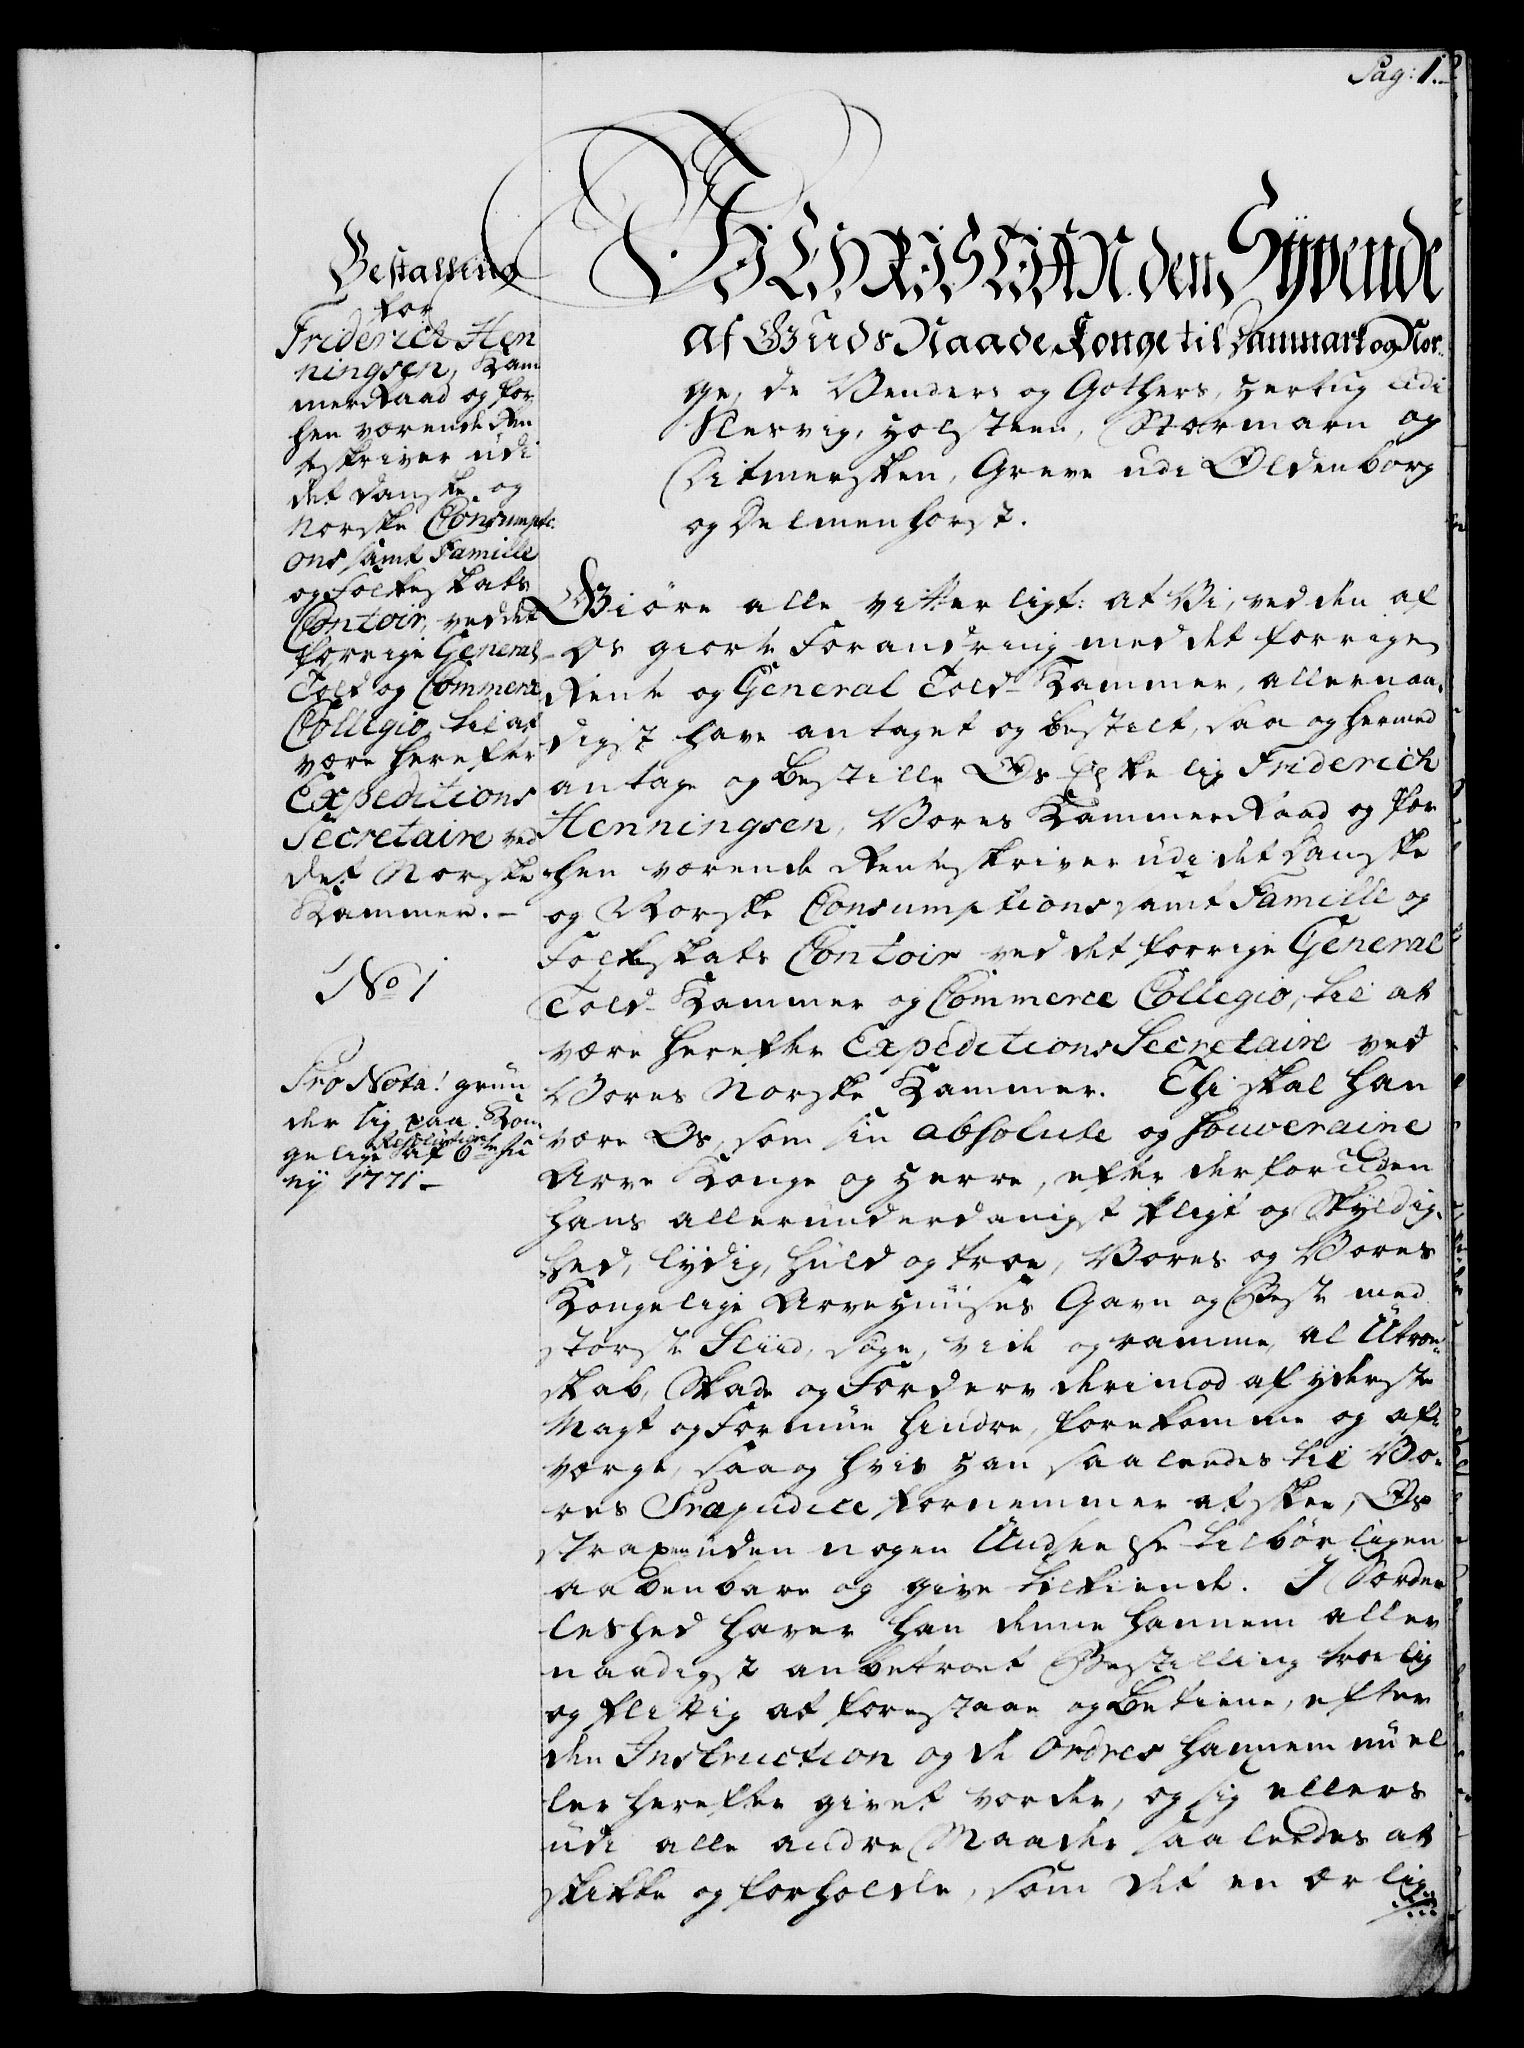 Pag: 1.
Bestalling
for
Friderich Hen
ningsen, Kam
merRaad og for
hen værende Ren
teskriver udi
det danske og
Norske Consumpti
ons samt Familie
og Folkeskats
Contoir, ved det
forrige General
Told og Commerce
Collegio, til at
være herefter
Expeditions
Secretaire ved
det Norske
Kammer. –
No 1
Pro Nota! grün
der sig paa Kon
gelige Resolution af 6te Ju
ny 1771 –
Vi CHRISTIAN den Syvende
af Guds Naade Konge til Danmark og Nor-
ge, de Venders og Gothers, Hertug udi
Slesvig, Holsteen, Stormarn og
Ditmersken, Greve udi Oldenborg
og Delmenhorst.
Giöre alle vitterligt: at Vi, ved den af
Os giorte Forandring med det forrige
Rente og General Told-Kammer, allernaa-
digst have antaget og bestilt, saa og hermed
antage og bestille Os Elskelig Friderich
Henningsen, Vores KammerRaad og for
hen værende Renteskriver udi det danske
og Norske Consumptions samt Familie og
Folkskats Contoir ved det forrige General
Told-Kammer og Commerce Collegio, til at
være herefter Expeditions Secretaire ved
Vores Norske Kammer. Thi skal han
være Os, som sin absolute og souveraine
Arve Konge og Herre, efter derforuden
hans allerunderdanigst Pligt og Skyldig-
hed, lydig, huld og troe, Vores og Vores
Kongelige Arvehuuses Gavn og Beste med
störste Fliid, söge, vide og ramme, al Utroe-
skab, Skade og Forderv derimod af yderste
Magt og Formue hindre, forekomme og af-
værge, saa og hvis han saaledes til Vo-
res Præjudice fornemmer at skee, Os
strax uden nogen Undseelse tilbörligen
aabenbare og give tilkiende. I Sörde
leshed haver han denne hannem aller
naadigst anbetroet Bestilling troelig
og flittig at forestaae og betiene, efter
den Instruction og de Ordres hannem nu el
ler herefter givet vorder, og sig ellers
udi alle andre Maader saaledes at
skikke og forholde, som det en ærlig